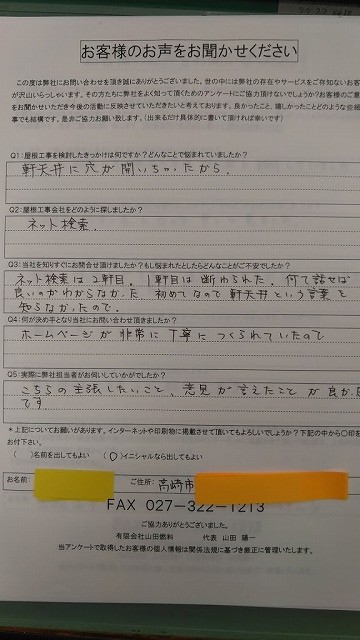 お客様のお声をお聞かせください
この度は弊社にお問い合わせを頂き誠にありがとうございました。世の中には弊社の存在やサービスをご存知ないお客
が沢山いらっしゃいます。その方たちに弊社をよく知って頂くためのアンケートにご協力頂けないでしょうか?お客様のご意
をお聞かせいただき今後の活動に反映させていただきたいと考えております。良かったこと、嬉しかったことどのような些細
事でも結構です。是非ご協力お願い致します。(出来るだけ具体的に書いて頂ければ幸いです)
Q1:屋根工事を検討したきっかけは何ですか?どんなことで悩まれていましたか?
軒天井に穴が開いちゃったから。
Q2:屋根工事会社をどのように探しましたか?
ネット検索。
Q3:当社を知りすぐにお問合せ頂けましたか?もし悩まれたとしたらどんなことがご不安でしたか?
ネット検索は2軒目。1軒目は断わられた。何て話せば
良いのかわからなかった 初めてなので軒天井という言葉を
知らなかたので。
Q4:何が決め手となり当社にお問い合わせ頂きましたか?
ホームページが非常に丁寧につくられていたので
Q5:実際に弊社担当者がお伺いしていかがでしたか?
こちらの主張したいこと、意見が言えたことが良か
です。
*上記についてお願いがあります。インターネットや印刷物に掲載させて頂いてもよろしいでしょうか?下記の中から〇印を
お付下さい。
( )名前を出してもよい (〇)イニシャルなら出してもよい
お名前: ご住所: 高崎市
FAX 027-322-1213
ご協力ありがとうございました。
有限会社山田燃料 代表 山田 陽一
当アンケートで取得したお客様の個人情報は関係法規に基づき厳正に管理いたします。